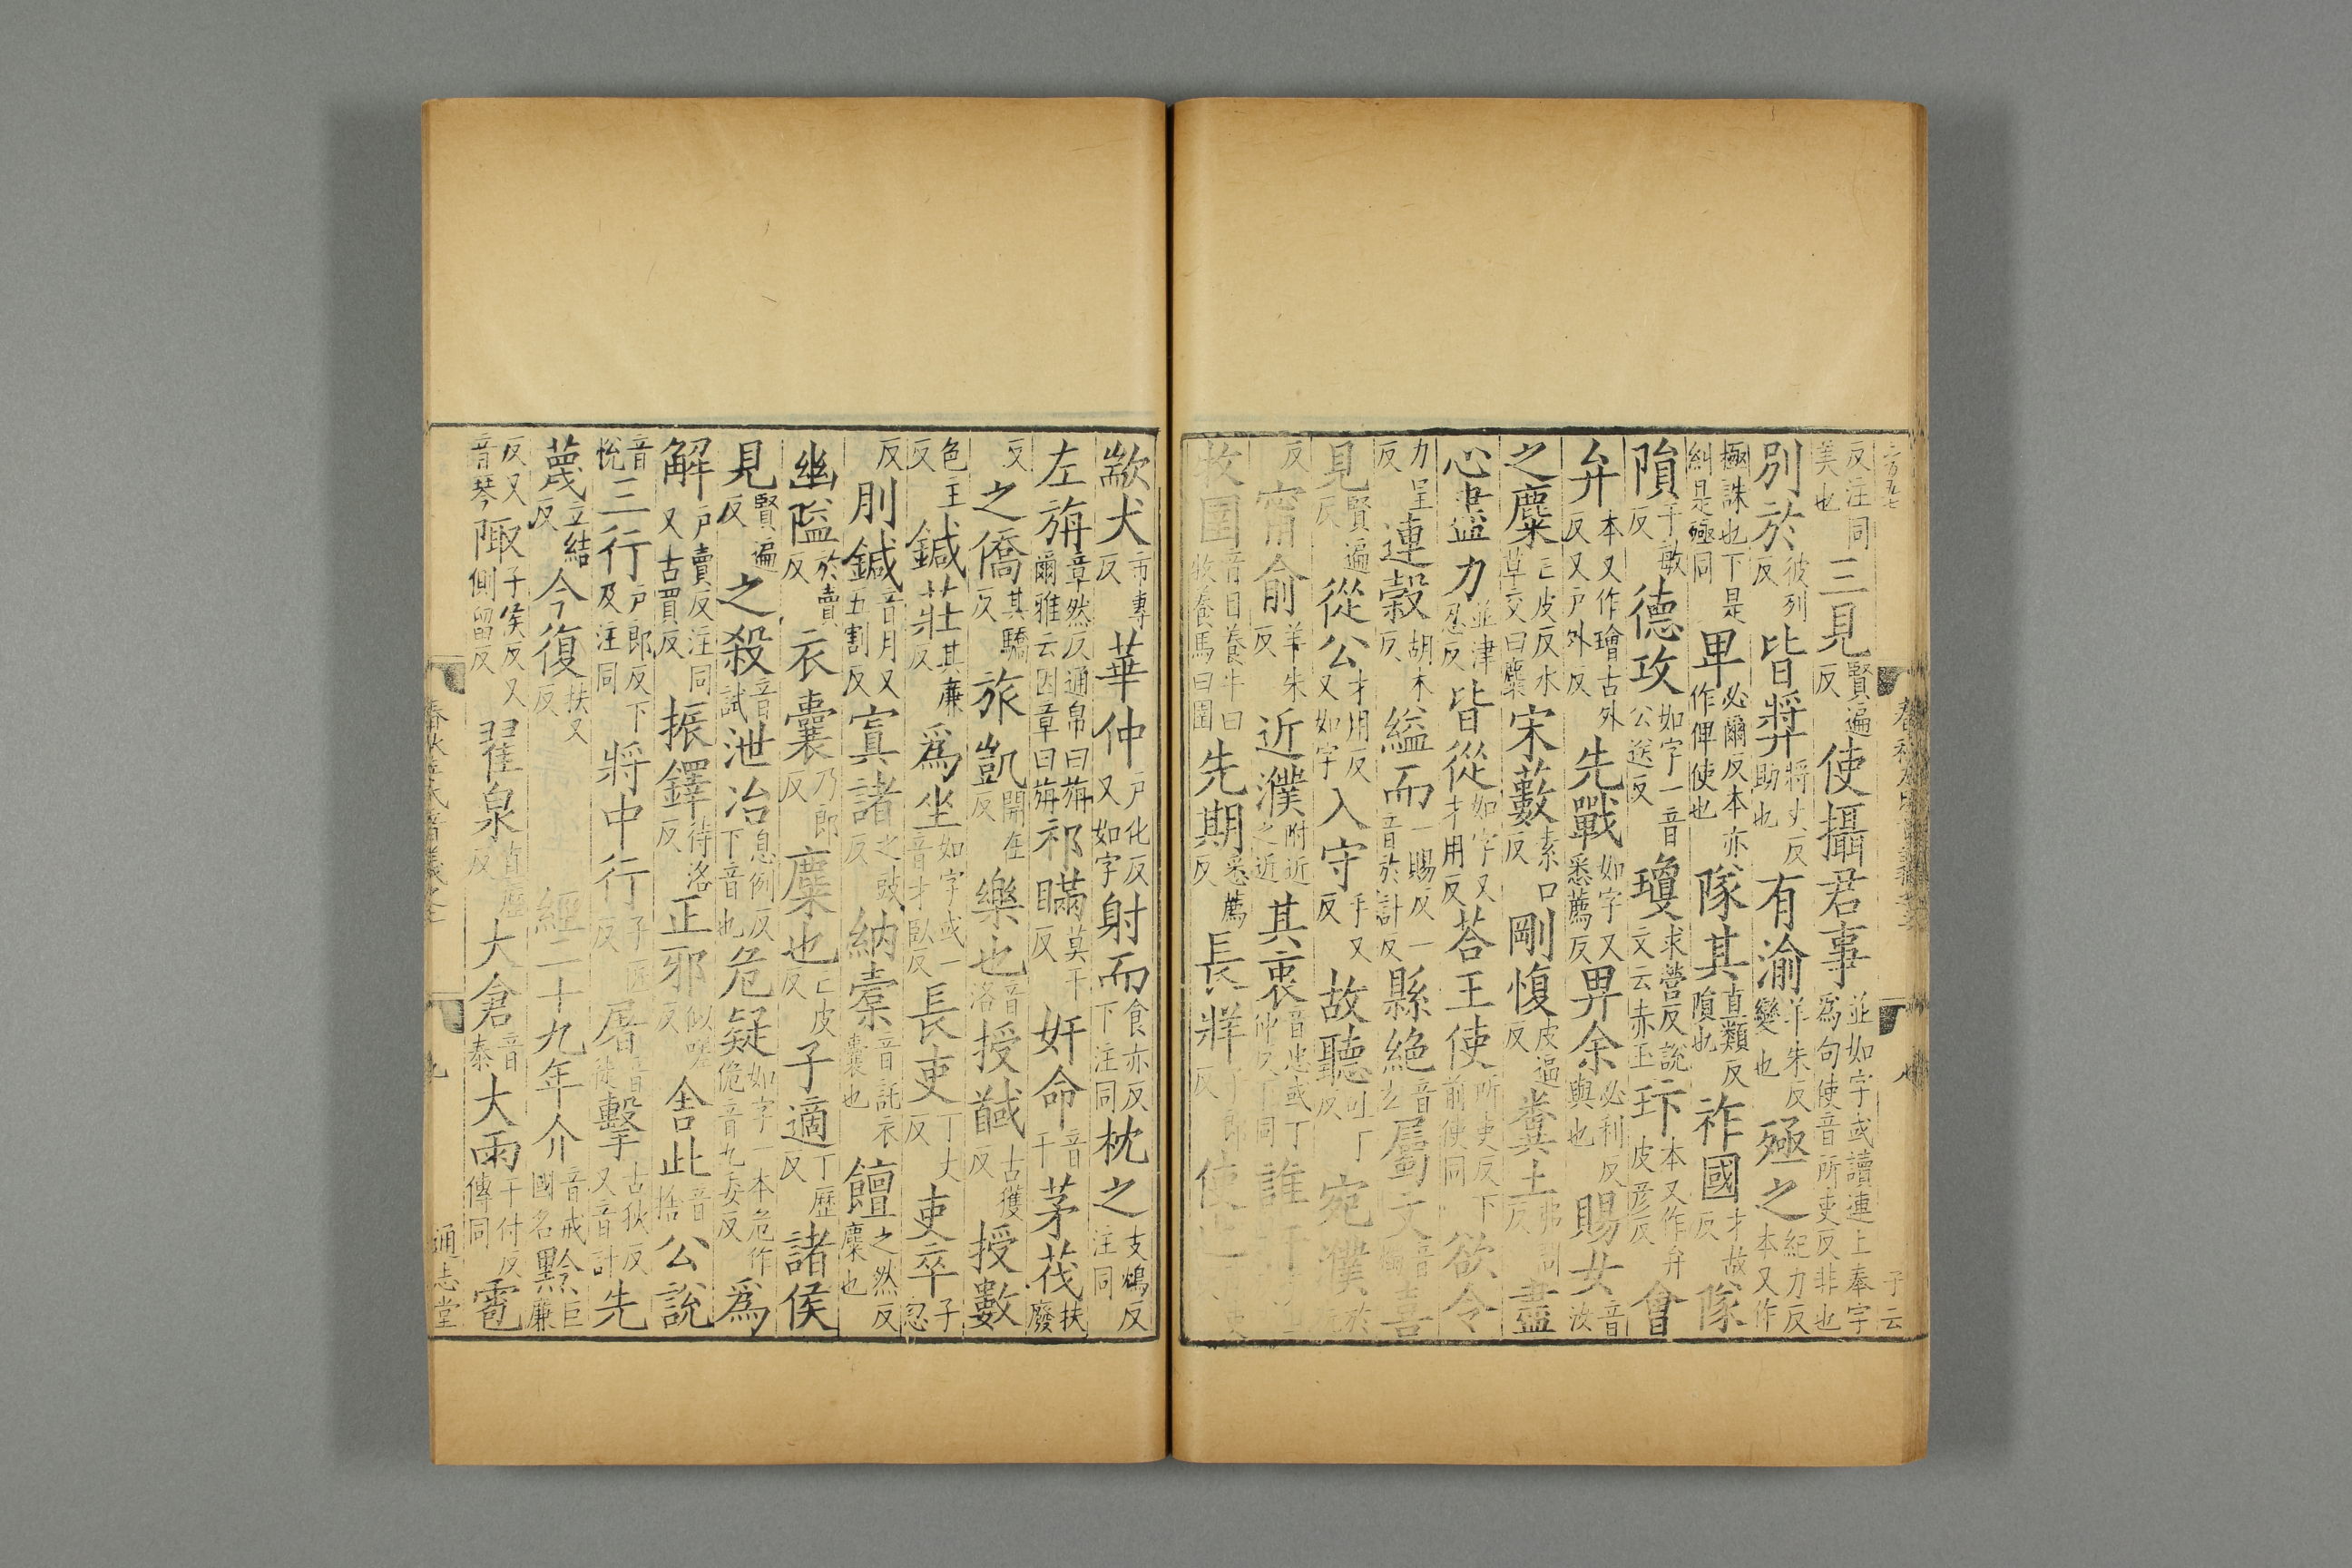 反注同美也三見賢遍反使攝君事並如字或讀連上奉字為句使音所吏反非也
別於彼列反皆奬將丈反助也有渝羊朱反變也殛之紀力反本又作
極誅也下是糾是殛同卑必爾反本亦作俾使也隊其直類反隕也祚國才故反隊
隕子敏反德攻如字一音公送反瓊求營反說文云赤玉玣本又作弁皮彦反會
弁本又作璯古外反又戸外反先戰如字又悉薦反畀余必利反與也賜女音汝
之麋亡皮反水草交曰麋宋藪素口反剛愎皮逼反糞土弗問反盡
心盡力並津忍反皆從如字又才用反荅王使所吏反下前使同欲令
力呈反連穀胡木反縊而一賜反一音於計反縣絶音玄屬文音燭喜
見賢遍反從公才用反又如字入守手又反故聽吐丁反宛濮於阮
反甯俞羊朱反近濮附近之近其衷音忠或丁仲反丁同誰
牧圉音目養牛曰牧養馬曰圉先期悉薦反長牂丁郎反使也
歂犬市專反華仲戸化反又如字射而食亦反下注同枕之支鴆反注同
左旃章然反通帛曰旃爾雅云因章曰旃祁瞞莫干反奸命音干茅茷扶廢
反之僑其驕反旅凱開在反樂也音洛授馘古獲反授數
色主反鍼莊其廉反爲坐如字或一音才臥反長吏丁丈反吏卒子忽
反刖鍼音月又五割反寘諸之豉反納橐音託衣囊也饘之然反麋也
幽隘於賣反衣囊乃郎反麋也亡皮反子適丁歷反諸侯
見賢遍反之殺音試泄冶息例反下音也危疑如字一本危作佹音九委反爲
解戸賣反注同又古買反振鐸待洛反正邪似嗟反舍此音捨公說
音悅三行戸郎反下及注同將中行子匠反屠音徒擊古狄反又音計先
蔑亡結反今復扶又反經二十九年介音戒國名黔巨廉
反又音琴陬子侯反又側留反翟泉直歷反大倉音泰大雨于付反傳同雹
通志堂